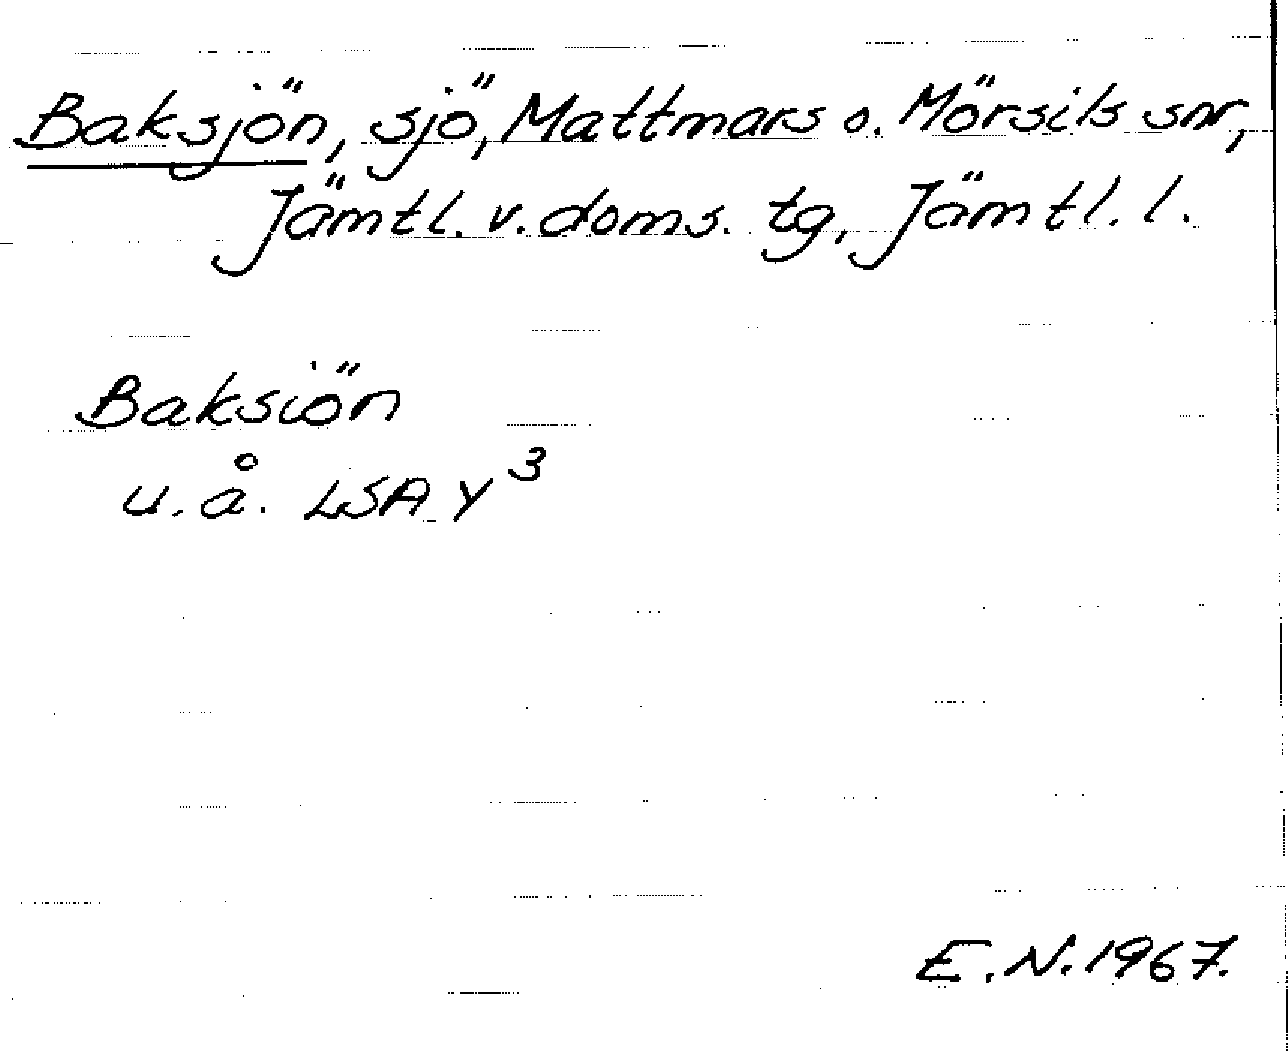 Baksjön, sjö, Mattmars o. Mörsils snr,
Jämtl. v. doms. tg, Jämtl. l.
Baksiön
u. å. LSA Y³
E. N. 1967.